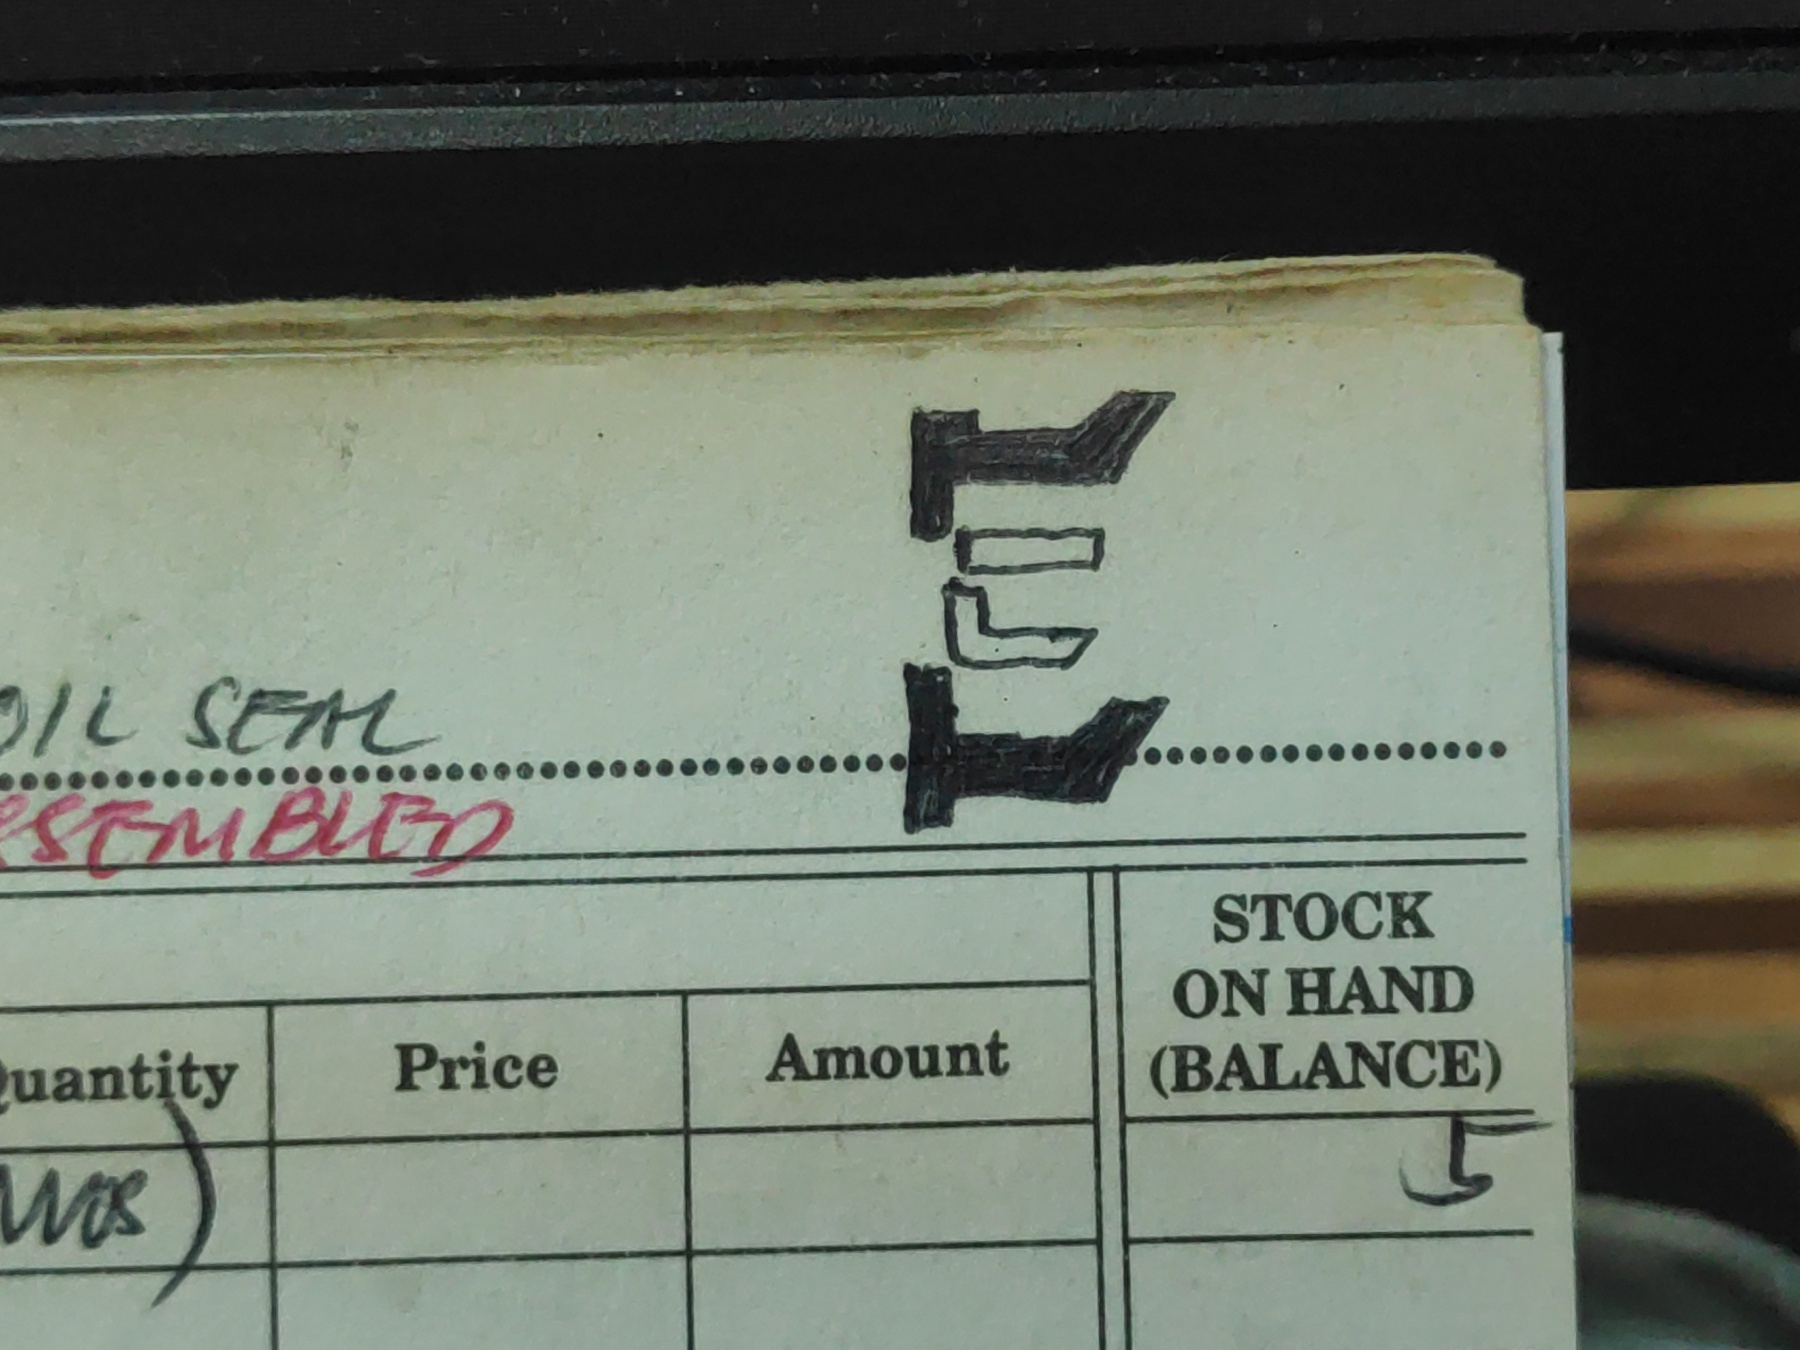 OIL SEAL
ASSEMBLED
Quantity Price Amount STOCK ON HAND (BALANCE)
5